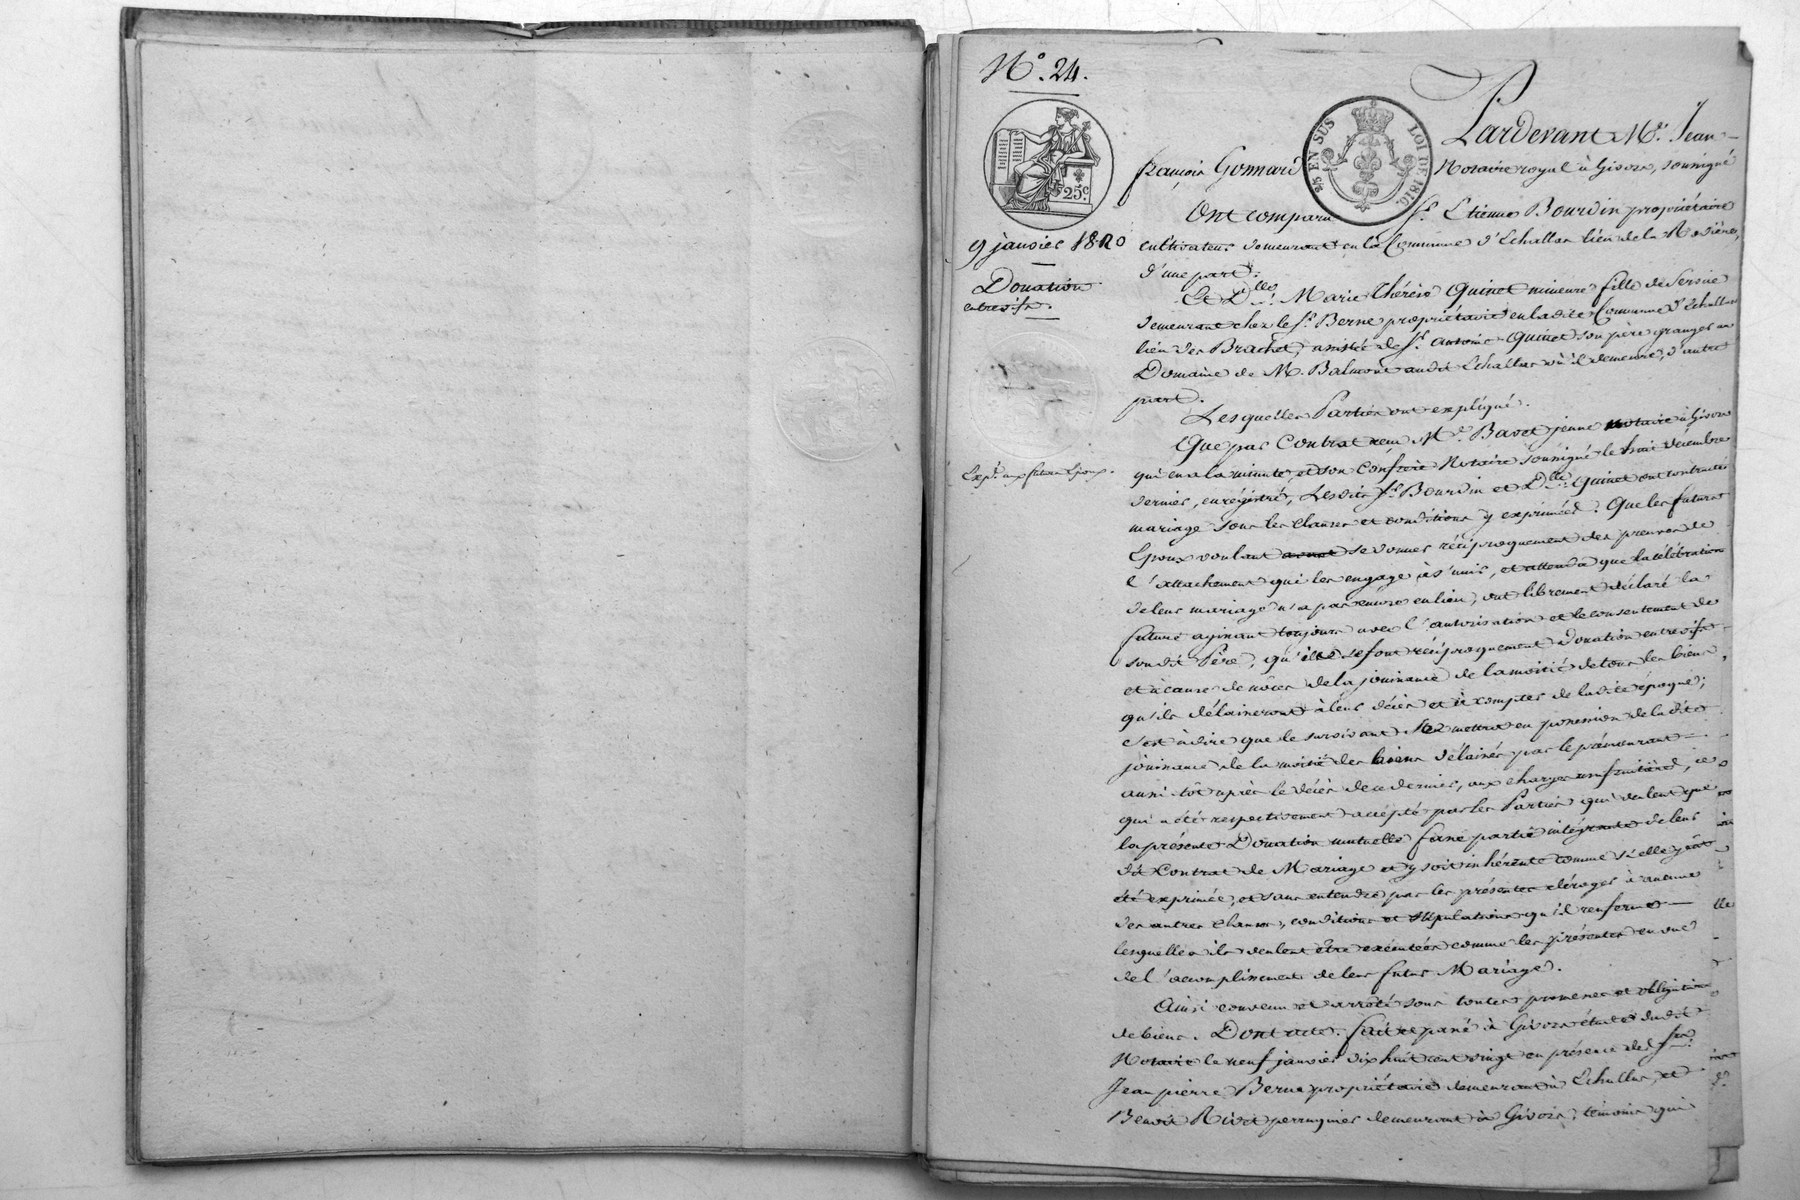 N.° 24.
25 EN SUS LOI DE 1816.
25.c
Pardevant M.e Jean
françois Gonnard Notaire royal à Givors, soussigné
Ont comparu S.r Etienne Bourdin propriétaire
9 janvier 1820
cultivateur demeurant en la Commune d'Echallas lieu de la Rodière,
d'une part.
Donation
entrevifs.
Et D.lle Marie Thérèse Quinet mineure fille de Service
demeurant chez le S.r Berne propriétaire en ladite Commune d'Echallas
lieu des Brachet, assistée de S.r antoine Quinet son père granger au
Domaine de M. Balmont audit Echallas où il demeure, d'autre
part.
Lesquelles Parties ont expliqué.
Que par Contrat reçu M.e Bavet jeune notaire à Givors
Exp.n aux futurs Epoux.
qui en a la minute, et son Confrère Notaire soussigné le trois décembre
dernier, enregistré, Lesdits S.r Bourdin et D.lle Quinet ont contracté
mariage sous les clauses et conditions y exprimées. Que les futurs
Epoux voulant se donner réciproquement des preuves de
l'attachement qui les engage à s'unir, et attendu que la célébration
de leur mariage n'a pas encore eu lieu, ont librement déclaré la
future agissant toujours avec l'autorisation et le consentement de
son dit Père, qu'ils se font réciproquement Donation entrevifs
et à cause de nôces de la jouissance de la moitié de tous les biens
qu'ils délaisseront à leur décès et à compter de ladite époque;
c'est à dire que le survivant se mettra en possession de la dite
jouissance de la moitié des biens délaissés par le prémourant
aussi tôt après le décès de ce dernier, aux charges usufruitières, ce
qui a été respectivement accepté par les Parties qui veulent que
la présente Donation mutuelle fasse partie intégrante de leur
dit Contrat de Mariage et y soit inhérente comme si elle y eût
été exprimée, et sans entendre par les présentes déroger à aucune
des autres clauses, conditions et stipulations qu'il renferme
lesquelles ils veulent être exécutées comme les présentes en vue
de l'accomplissement de leur futur Mariage.
Ainsi convenu et arrêté sous toutes promesses et obligations
de biens. Dont acte. fait et passé à Givors étude dudit
Notaire le neuf janvier dix huit cent vingt en présence des S.rs
Jean pierre Berne propriétaire demeurant à Echallas, et
Benoit Rivet perruquier demeurant à Givors, témoins qui